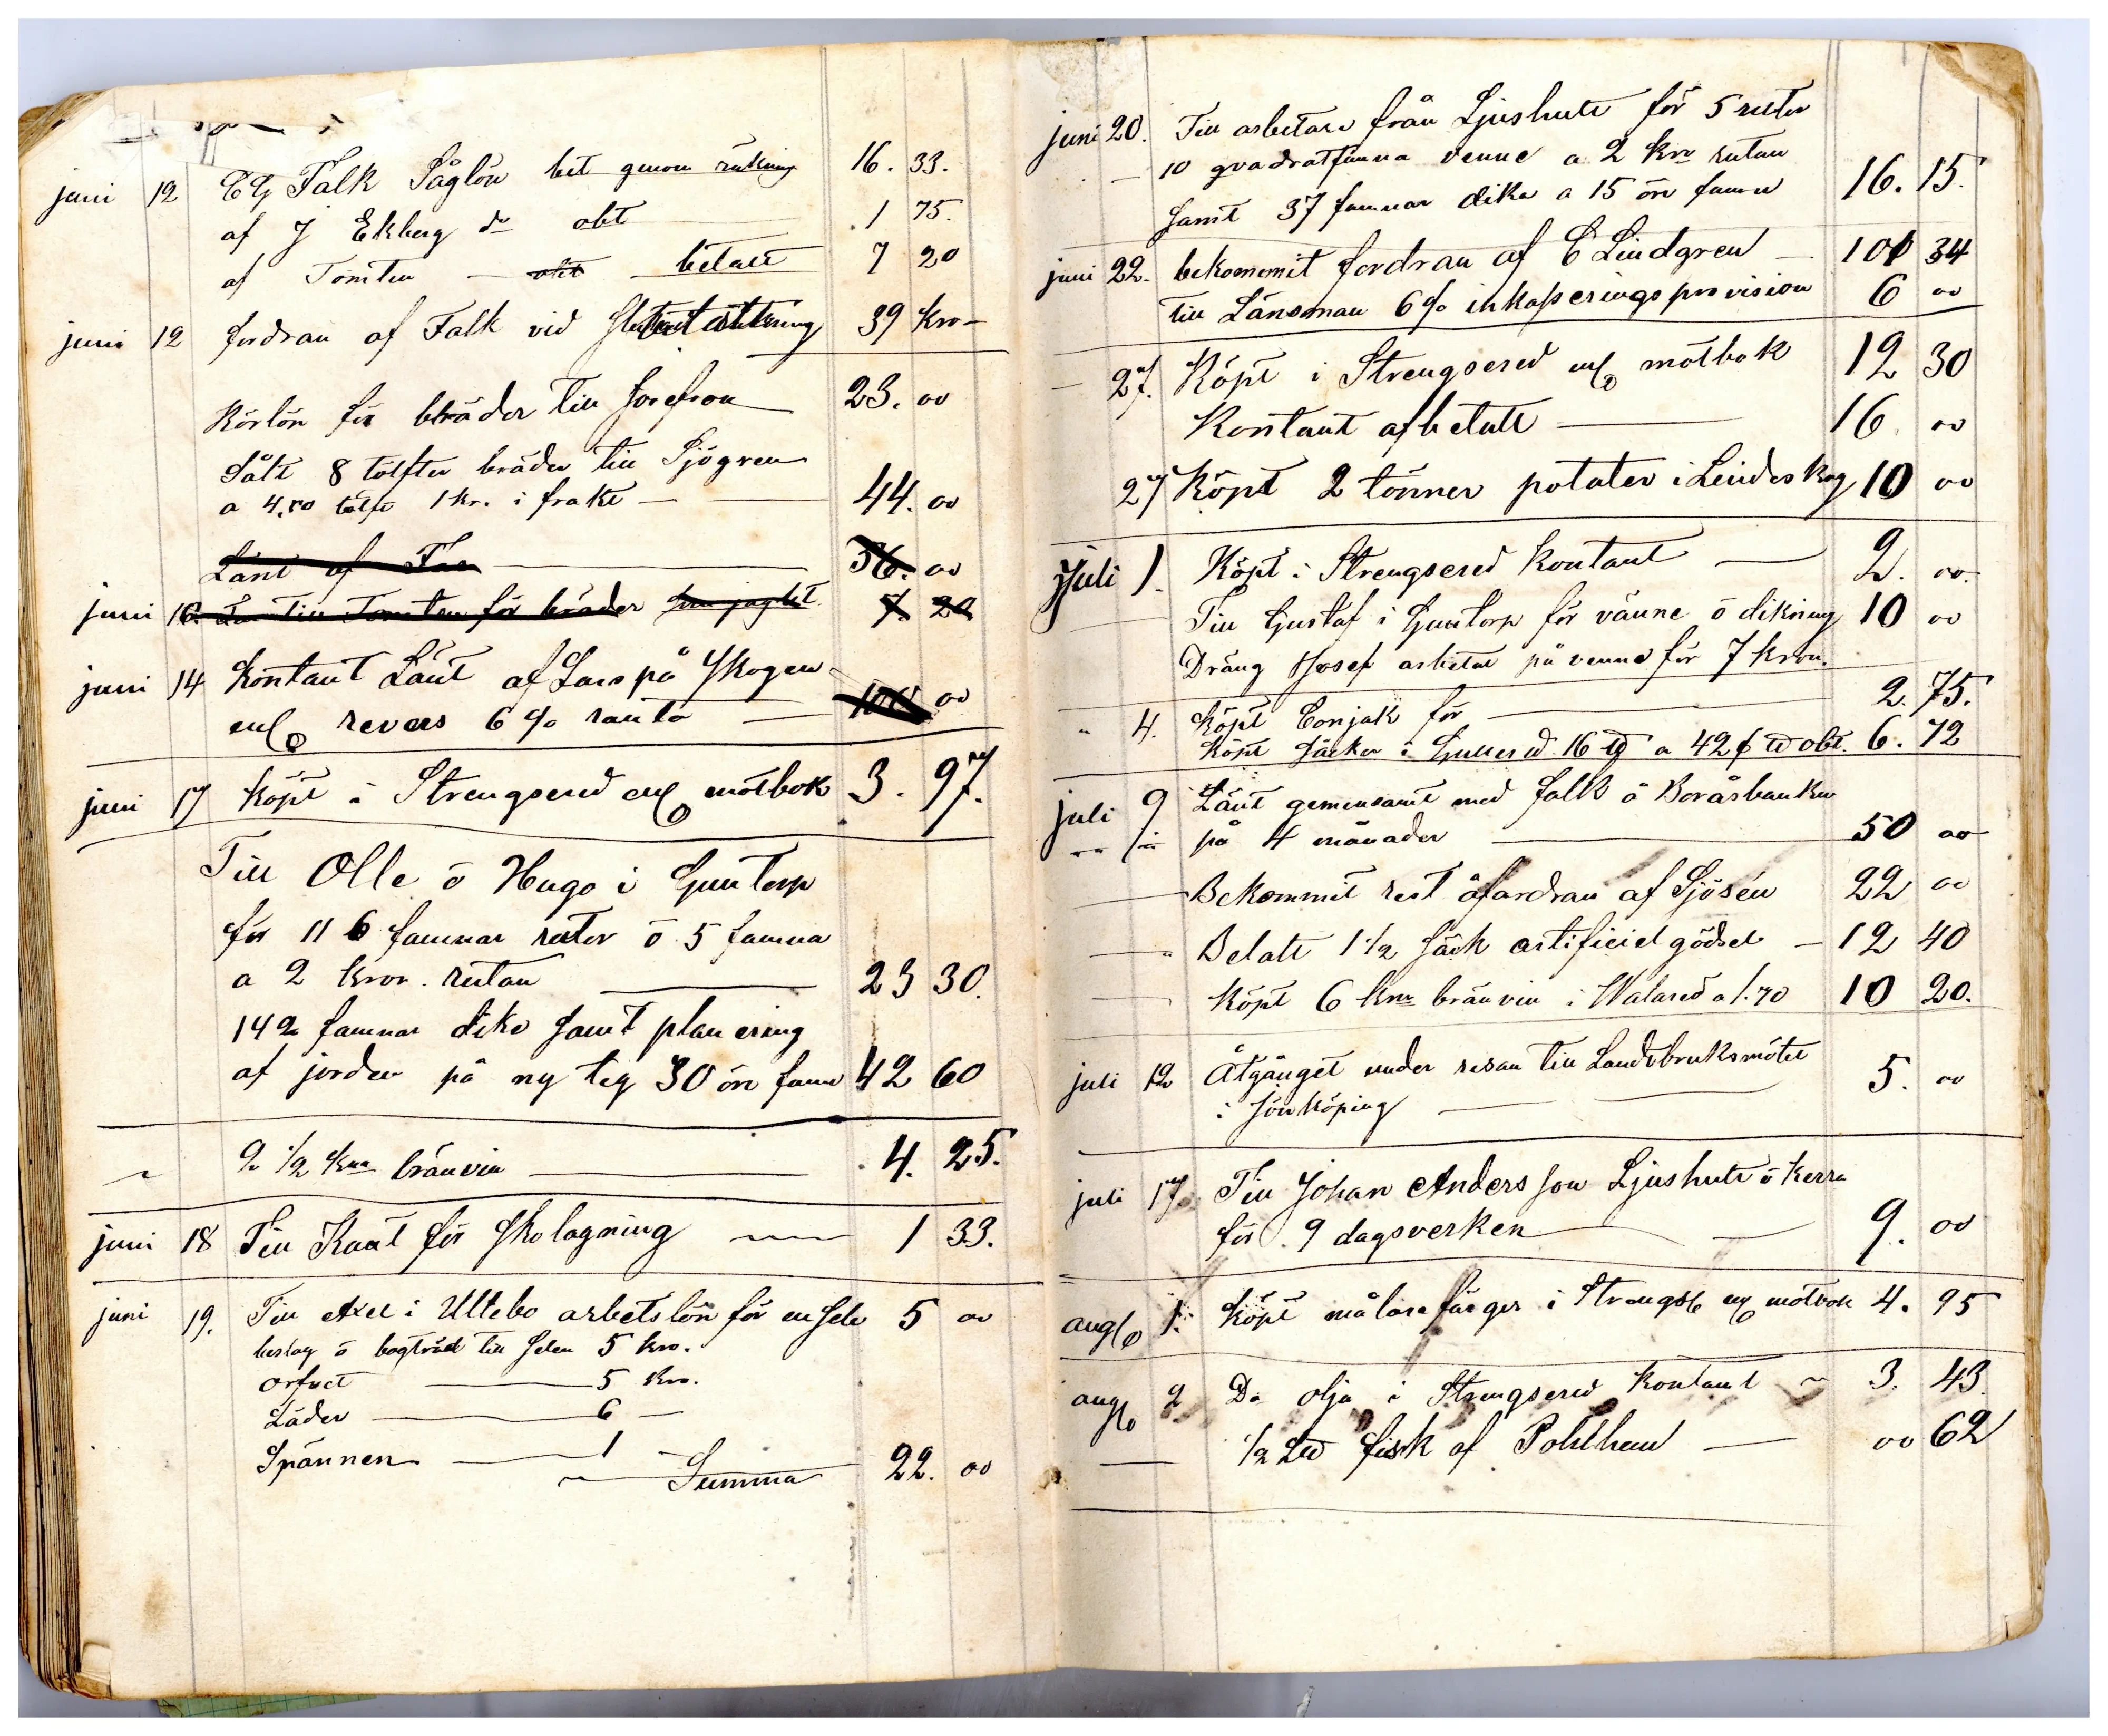 juni 12 CG Falk Såglön bet genom räkning 16. 33.
af J Ekberg do obt 1 75.
af Tomten obt betalt 7 20
juni 12 fordran af Falk vid 39 kro
Körlön för bräder till Josefson 23. 00
Sålt 8 tolfter bräder till Sjögren
a 4.50 tolft 1 kr. i frakt 44. 00
Lånt af 36. 00
juni 16. till Tomten för bräder 7. 20
juni 14 Kontant Lånt af Lars på Skogen
enl revers 6 % ränta 100 00
juni 17 Köpt i Strengsered enl motbok 3. 97.
Till Olle o Hugo i Guntorp
för 11 6 famnar rutor o 5 famna
a 2 kror. rutan 23 30.
142 famnar dike samt planering
af jorden på ny teg 30 öre famn 42 60
" 2 1/2 kna bränvin 4. 25.
juni 18 Till Knut för skolagning 1 33.
juni 19. Till Axel i Ullebo arbetslön för en sele 5 00
beslag o bogträd till selen 5 kro.
5 kro.
Läder 6
Spännen 1
Summa 22. 00
juni 20. Till arbetare från Ljushult för 5 rutor
10 qvadratfamna venne a 2 kr rutan
samt 37 famnar dika a 15 öre famn 16. 15.
juni 22. bekommit fordran af C Lindgren 101 34
till Länsman 6 % inkasseringsprovision 6 00
27. Köpt i Strengsered enl motbok 12 30
Kontant afbetalt 16. 00
27 Köpt 2 tönner potater i Lindeskog 10 00
Juli 1. Köpt i Strengsered Kontant 2. 00.
Till Gustaf i Guntorp för vänne o dikning 10 00
Dräng Josef arbetat på venne för 7 kron.
" 4. Köpt Conjak för 2. 75.
Köpt i Gullered 16 ℔ a 42 ℔ obt. 6. 72
juli 9 Lånt gemensamt med falk å Boråsbanken
på 4 månader 50 00
Bekommit rest åfordran af Sjösén 22 00
Betalt 1 1/2 säck artificiel gödsel 12 40
Köpt 6 kna bränvin i Walared a 1.70 10 20.
juli 12 Åtgånget under resan till Landtbruksmötet
i Jönköping 5. 00
juli 17 Till Johan Andersson Ljushult o Kerra
för 9 dagsverken 9. 00
aug 1. Köpt målarefärger i Strengse enl motbok 4. 95
aug 2 Do olja i Strengsered Kontant 3. 43
1/2 L℔ fisk af Pohlhem 00 62